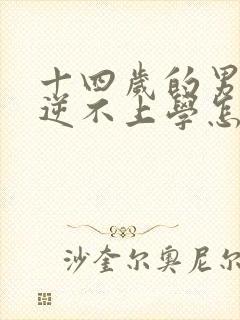 十四歲的男
逆不上學怎
沙奎尔奥尼尔